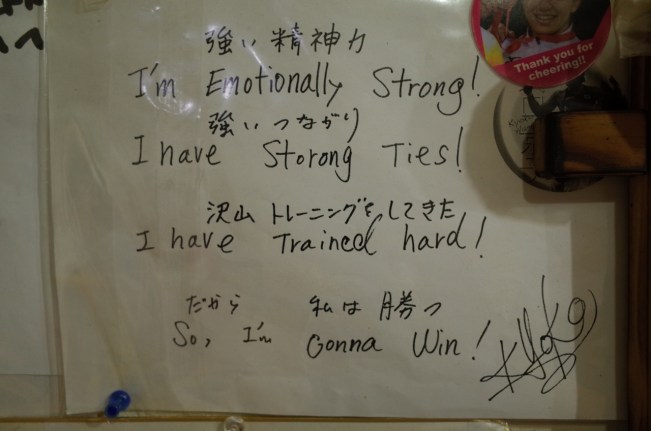 強い精神力
I'm Emotionally Strong!
強いつながり
I have Storong Ties!
沢山トレーニングをしてきた
I have Trained hard!
だから 私は勝つ
So, I'm Gonna Win!
Thank you for
cheering!!